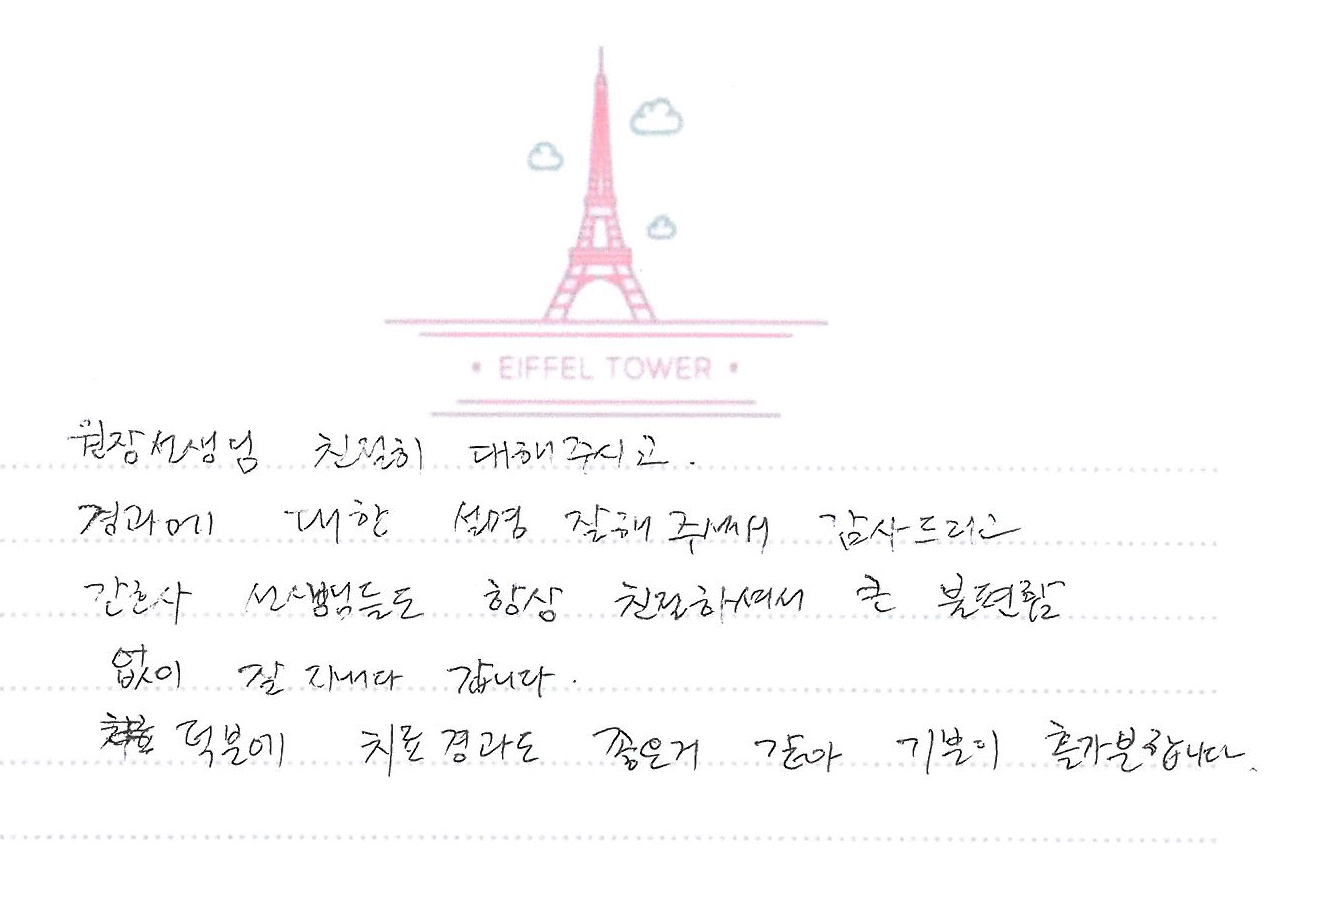 • EIFFEL TOWER •
원장선생님 친절히 대해주시고.
경과에 대한 설명 잘해 주셔서 감사드리고
간호사 선생님들도 항상 친절하셔서 큰 불편함
없이 잘 지내다 갑니다.
덕분에 치료경과도 좋은거 같아 기분이 홀가분합니다.